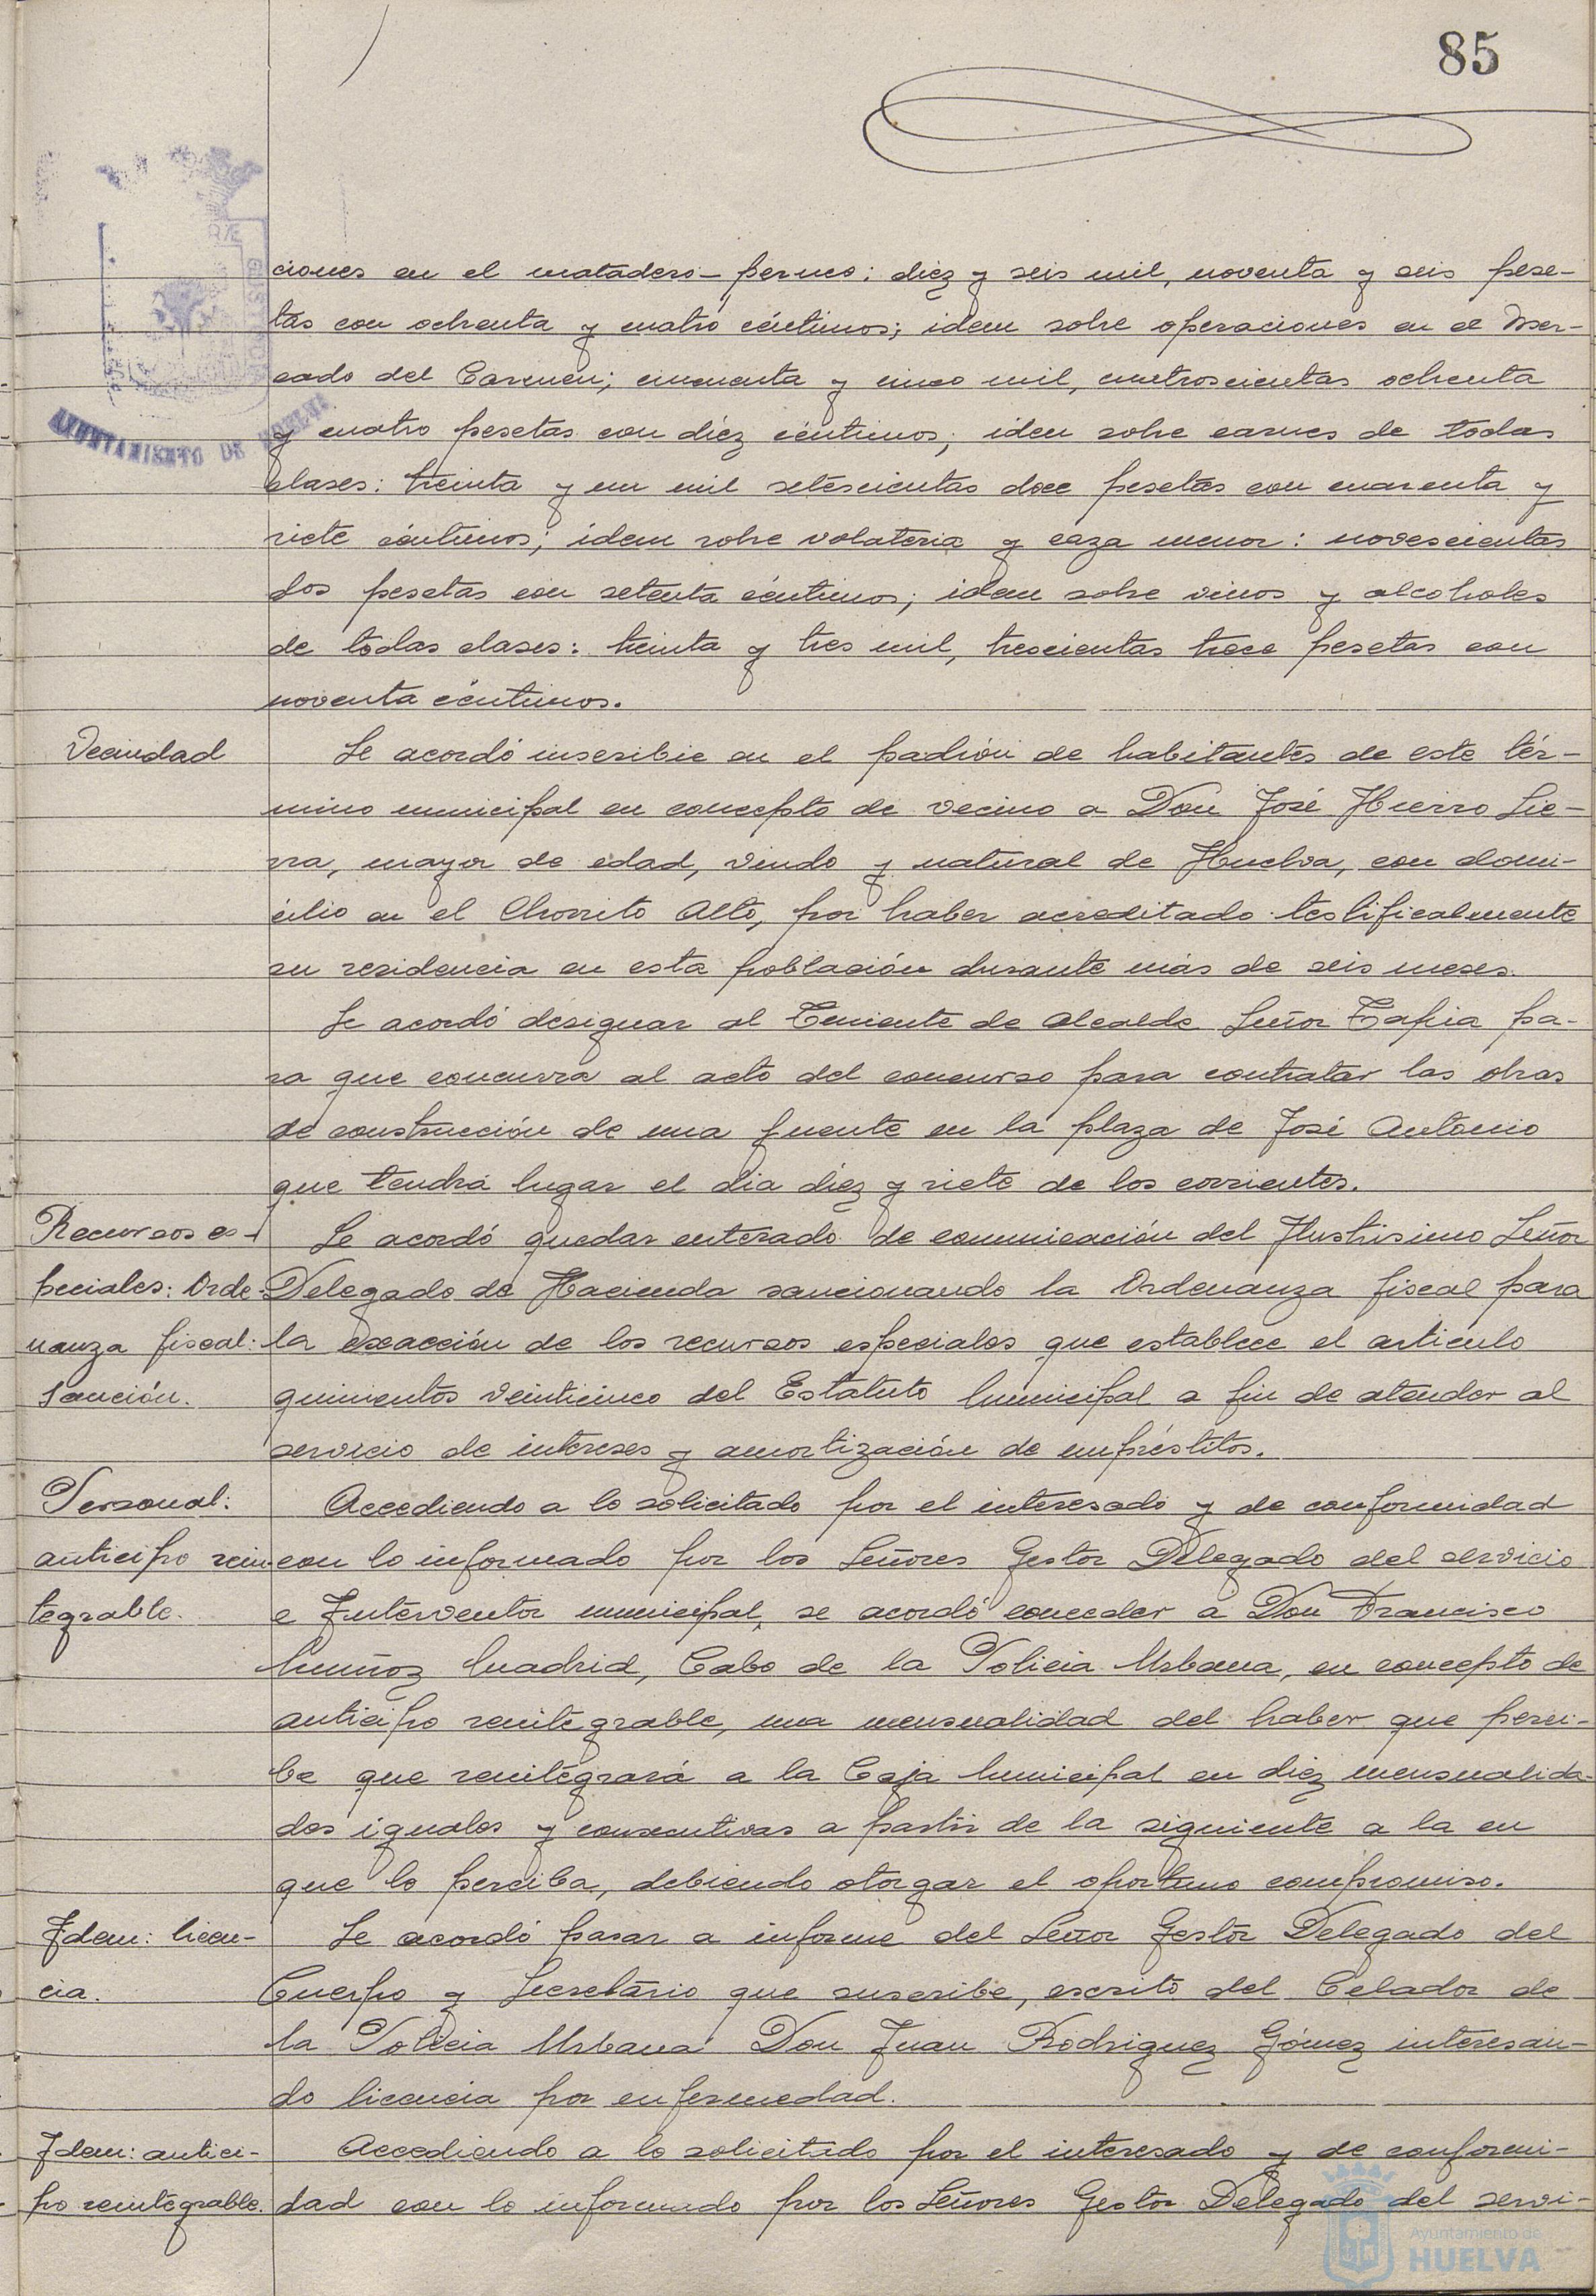 85
AYUNTAMIENTO DE HUELVA
ciones en el matadero-permeo: diez y seis mil, noventa y seis pese-
tas con ochenta y cuatro céntimos; idem sobre operaciones en el Mer-
cado del Carmen; cincuenta y cinco mil, cuatroscientas ochenta
y cuatro pesetas con diéz céntimos; idem sobre carnes de todas
clases: treinta y un mil setescientas doce pesetas con cuarenta y
siete céntimos; idem sobre volateria y caza menor: novescientas
dos pesetas con setenta céntimos; idem sobre vinos y alcoholes
de todas clases: treinta y tres mil, trescientas trece pesetas con
noventa céntimos.
Vecindad
Se acordó inscribir en el padrón de habitantes de este tér-
mino municipal en concepto de vecino a Don José Hierro Sie-
rra, mayor de edad, viudo y natural de Huelva, con domi-
cilio en el Chorrito Alto, por haber acreditado testificalmente
su residencia en esta población durante más de seis meses.
Se acordó designar al Teniente de Alcalde Señor Tapia pa-
ra que concurra al acto del concurso para contratar las obras
de construcción de una fuente en la plaza de José Antonio
que tendrá lugar el dia diez y siete de los corrientes.
Recursos es-
peciales: Orde-
nanza fiscal:
sanción.
Se acordó quedar enterado de comunicación del Ilustrisimo Señor
Delegado de Hacienda sancionando la Ordenanza fiscal para
la exacción de los recursos especiales que establece el articulo
quinientos veinticinco del Estatuto Municipal a fin de atender al
servicio de intereses y amortización de empréstitos.
Personal:
anticipo rein-
tegrable.
Accediendo a lo solicitado por el interesado y de conformidad
con lo informado por los Señores Gestor Delegado del servicio
e Interventor municipal, se acordó conceder a Don Francisco
Muñoz Madrid, Cabo de la Policia Urbana, en concepto de
anticipo reintegrable, una mensualidad del haber que perci-
be que reintegrará a la Caja Municipal en diez mensualida-
des iguales y consecutivas a partir de la siguiente a la en
que lo perciba, debiendo otorgar el oportuno compromiso.
Idem: licen-
cia.
Se acordó pasar a informe del Señor Gestor Delegado del
Cuerpo y Secretario que suscribe, escrito del Celador de
la Policia Urbana Don Juan Rodriguez Gómez interesan-
do licencia por enfermedad.
Idem: antici-
po reintegrable.
Accediendo a lo solicitado por el interesado y de conformi-
dad con lo informado por los Señores Gestor Delegado del servi-
Ayuntamiento de
HUELVA